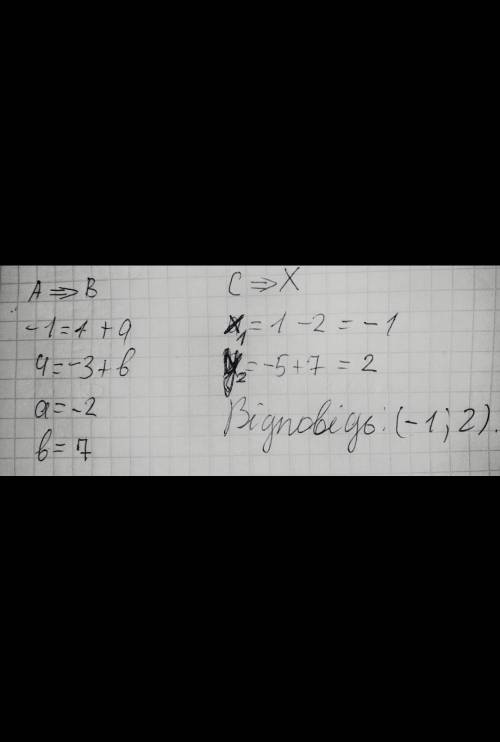 A ⇒ B
-1=1+a
4=-3+b
a=-2
b=7
C ⇒ X
x₁=1-2=-1
y₂=-5+7=2
Відповідь: (-1; 2).